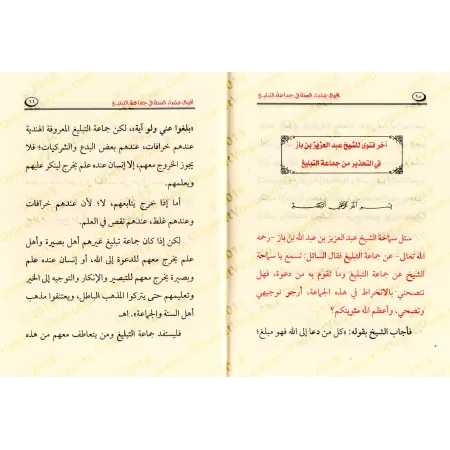 ١٥
أقوال علماء السنة في جماعة التبليغ
آخر فتوى للشيخ عبد العزيز بن باز
في التحذير من جماعة التبليغ
سئل سماحة الشيخ عبد العزيز بن عبد الله بن باز -رحمه
الله تعالى- عن جماعة التبليغ فقال السائل: نسمع يا سماحة
الشيخ عن جماعة التبليغ وما تقوم به من دعوة، فهل
تنصحني بالانخراط في هذه الجماعة، أرجو توجيهي
ونصحي، وأعظم الله مثوبتكم؟
فأجاب الشيخ بقوله: «كل من دعا إلى الله فهو مبلغ؛
١٦
أقوال علماء السنة في جماعة التبليغ
«بلغوا عني ولو آية»، لكن جماعة التبليغ المعروفة الهندية
عندهم خرافات، عندهم بعض البدع والشركيات؛ فلا
يجوز الخروج معهم، إلا إنسان عنده علم يخرج لينكر عليهم
ويعلمهم.
أما إذا خرج يتابعهم، لا؛ لأن عندهم خرافات
وعندهم غلط، عندهم نقص في العلم.
لكن إذا كان جماعة تبليغ غيرهم أهل بصيرة وأهل
علم يخرج معهم للدعوة إلى الله، أو إنسان عنده علم
وبصيرة يخرج معهم للتبصير والإنكار والتوجيه إلى الخير
وتعليمهم حتى يتركوا المذهب الباطل، ويعتنقوا مذهب
أهل السنة والجماعة». اهـ
فليستفد جماعة التبليغ ومن يتعاطف معهم من هذه